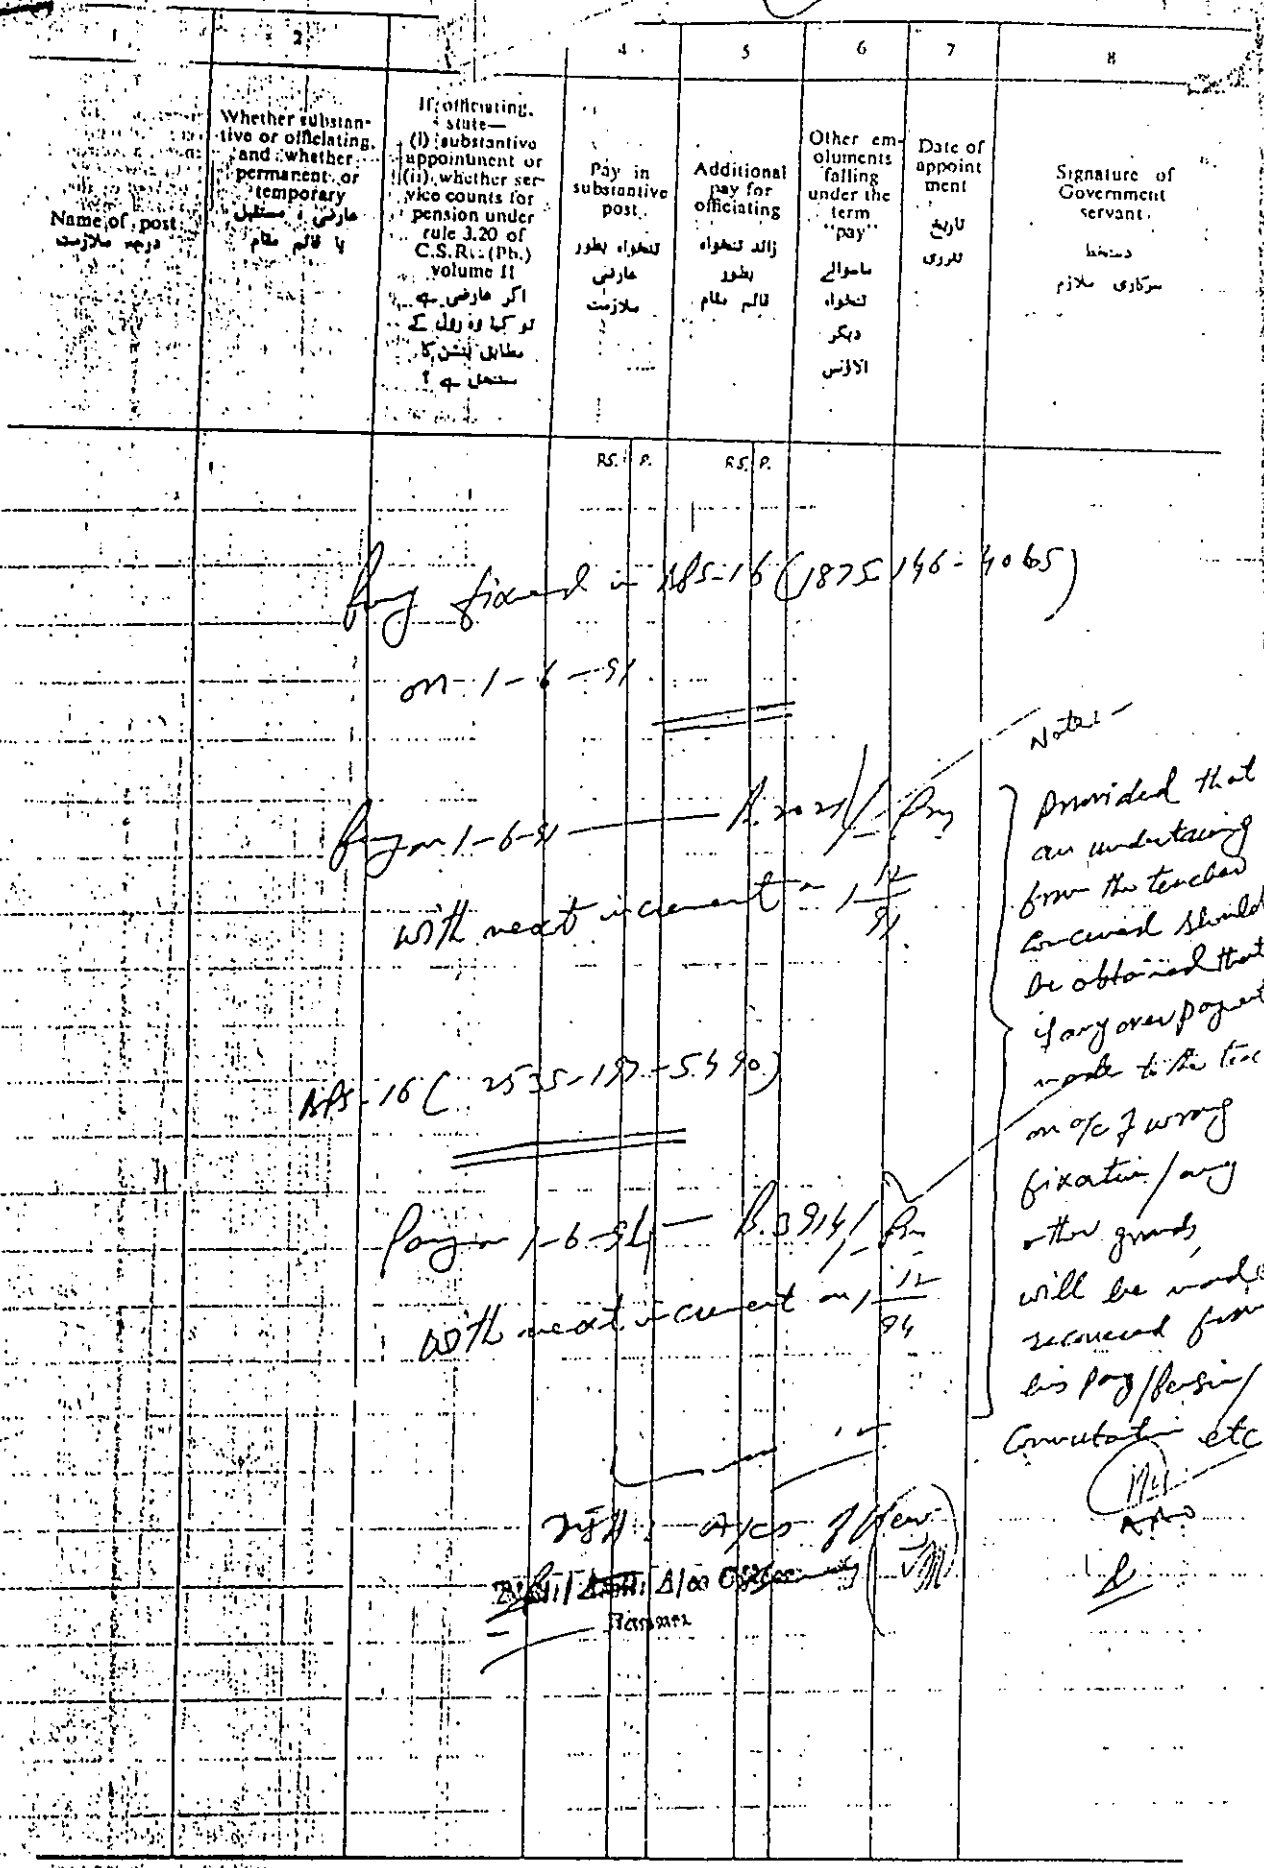 1 2 4 5 6 7 8
Name of post
درجہ ملازمت
Whether substan-
tive or officiating,
and whether
permanent or
temporary
عارضی ، مستقل
یا قائم مقام
If officiating,
state—
(i) substantive
appointment or
(ii) whether ser-
vice counts for
pension under
rule 3.20 of
C.S.R. (Pb.)
volume II
اگر عارضی ہے
تو کیا وہ رول کے
مطابق پنشن کا
مستحق ہے ؟
Pay in
substantive
post
تنخواہ بطور
عارضی
ملازمت
Additional
pay for
officiating
زائد تنخواہ
بطور
قائم مقام
Other em-
oluments
falling
under the
term
"pay"
ماسوائے
تنخواہ
دیگر
الاؤنس
Date of
appoint
ment
تاریخ
تقرری
Signature of
Government
servant
دستخط
سرکاری ملازم
RS. P. RS. P.
Pay fixed in BPS-16 (1875-146-4065)
on 1-6-91
Pay on 1-6-91 — Rs. 2021/- Pm
with next increment on 1-12-91
BPS-16 (2535-197-5490)
Pay on 1-6-94 — Rs. 3914/- Pm
with next increment on 1-12-94
Note:-
provided that
an undertaking
from the teacher
concerned should
be obtained that
if any over payment
made to the teac
on a/c of wrong
fixation/any
other grounds,
will be made
recovered from
his pay/Pension/
Commutation etc